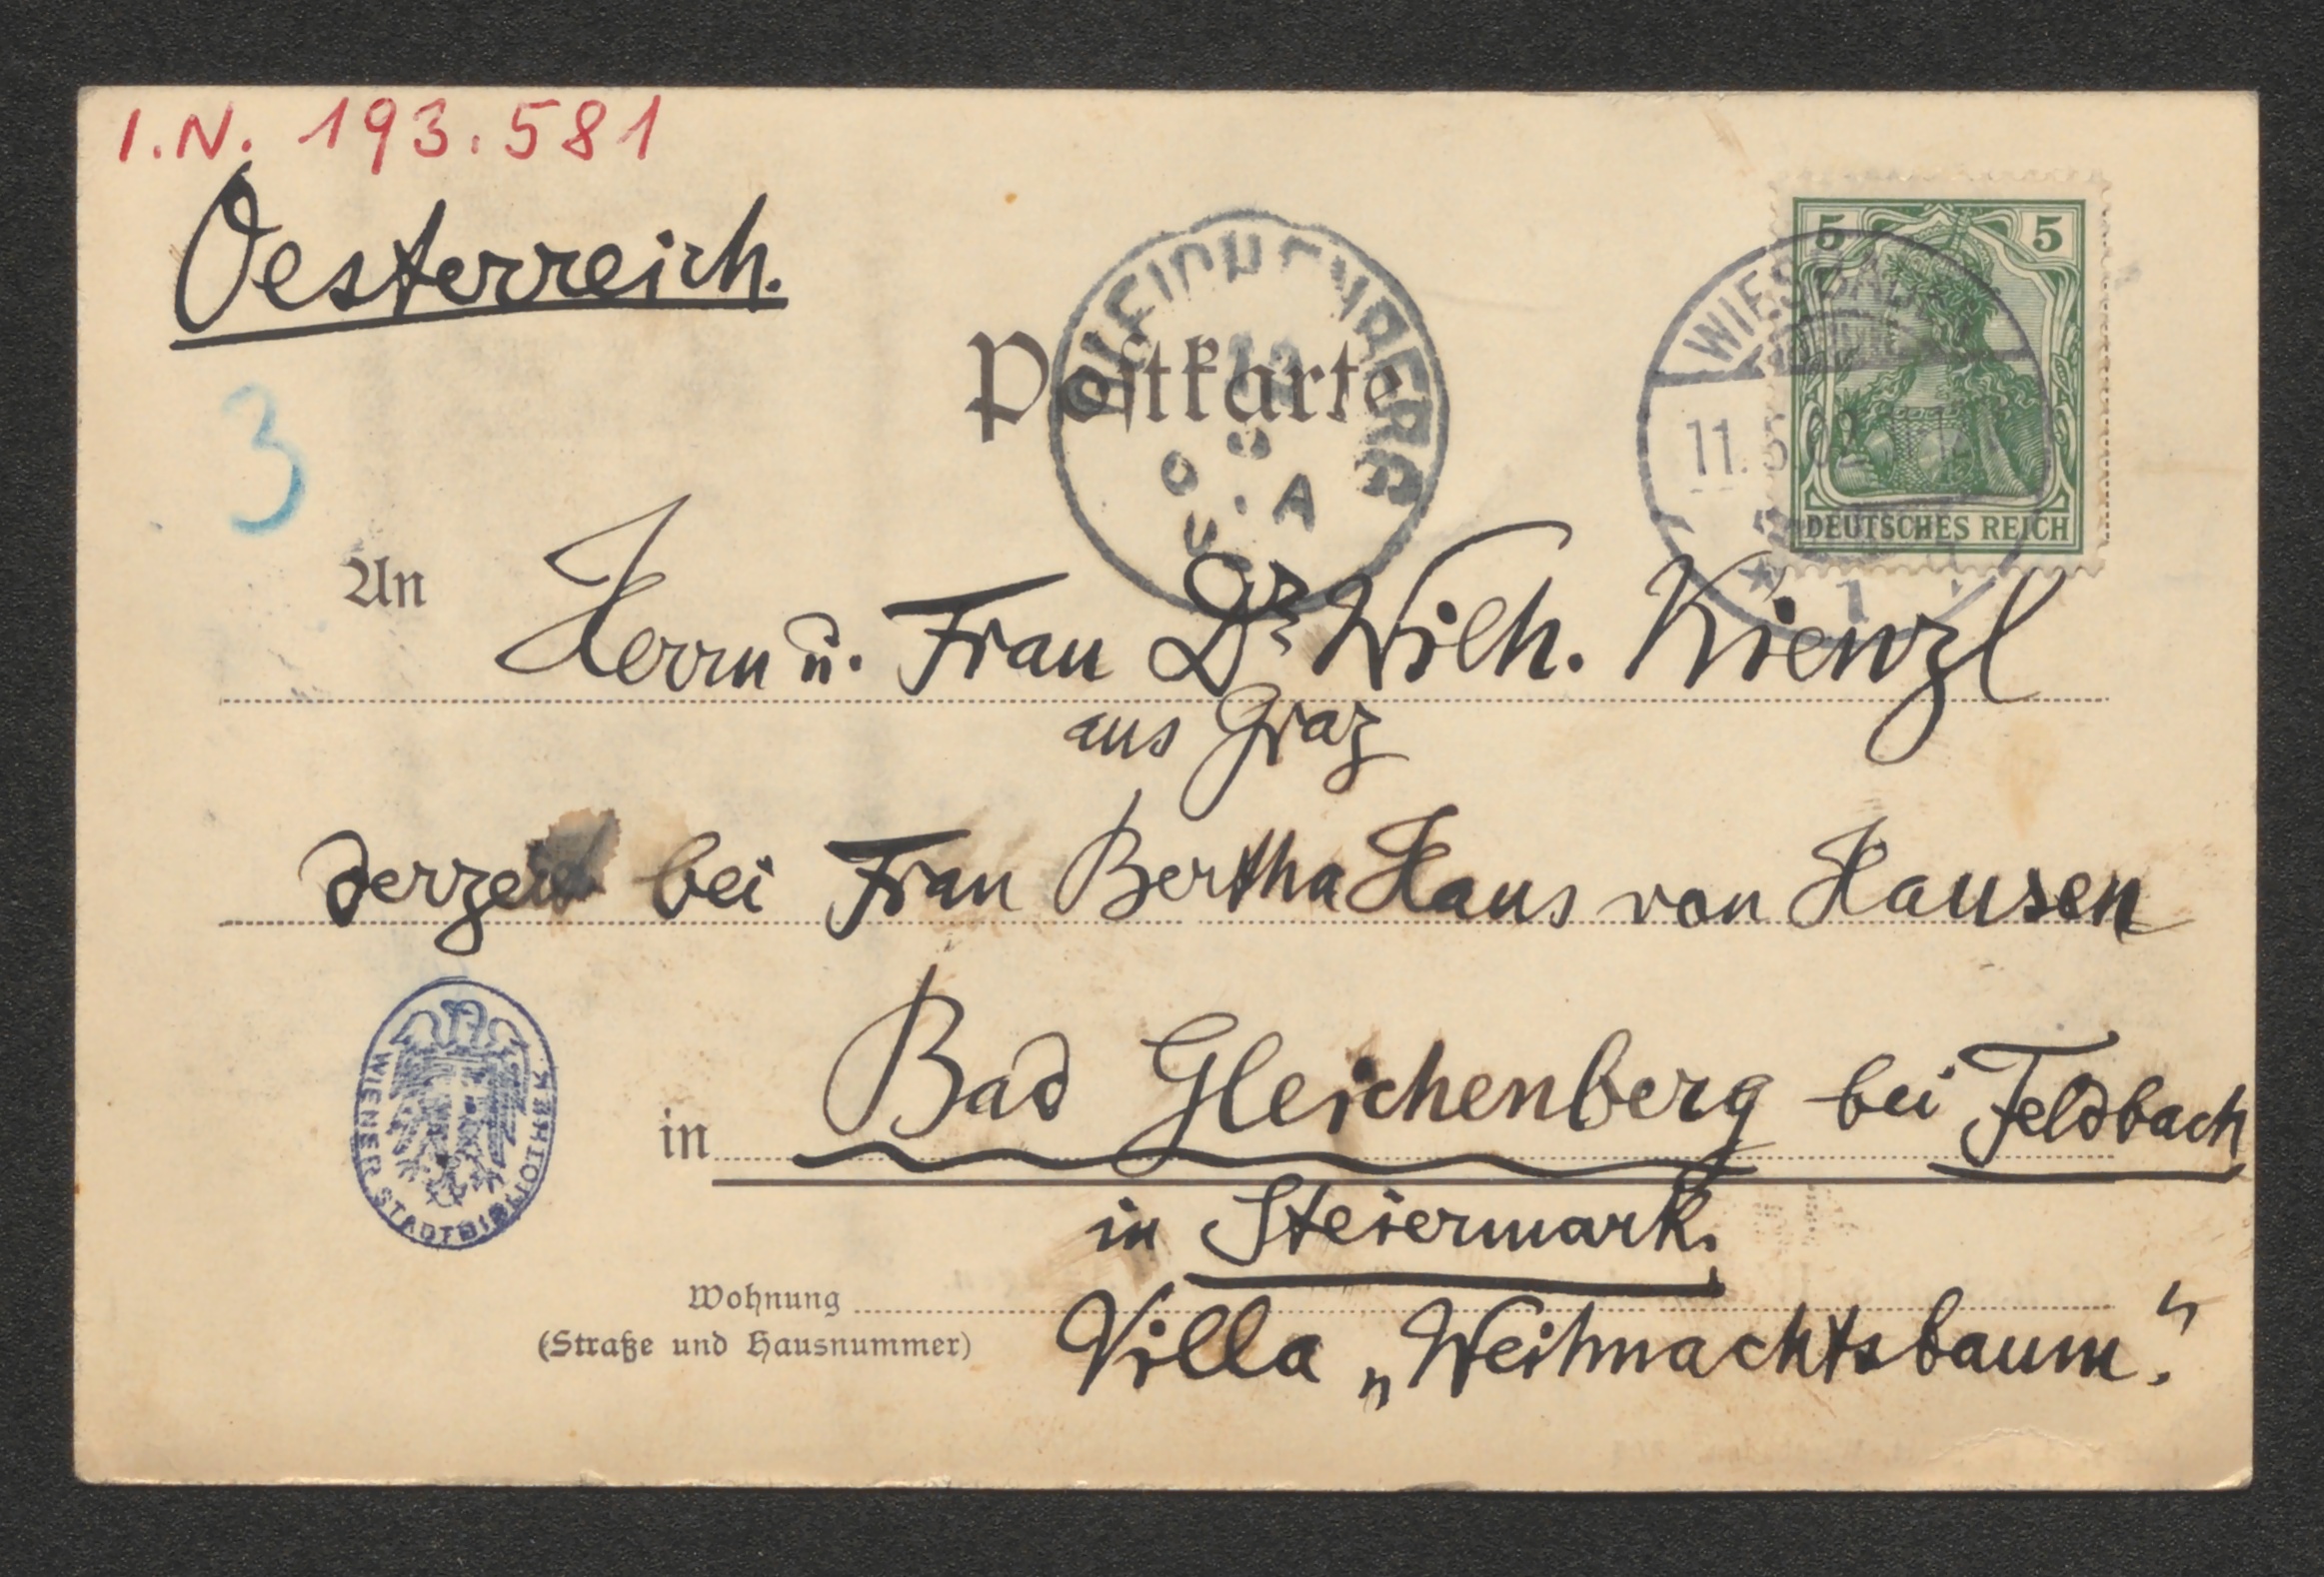 I.N. 193.581
Oesterreich.
5 5
WIESBADEN
11.5.02
DEUTSCHES REICH
1
GLEICHENBERG
Postkarte
3
An Herrn u. Frau Dr Wilh. Kienzl
aus Graz
derzeit bei Frau Bertha Haus von Hausen
WIENER STADTBIBLIOTHEK
in Bad Gleichenberg bei Feldbach
in Steiermark.
Wohnung
(Straße und Hausnummer)
Villa „Weihnachtsbaum.“